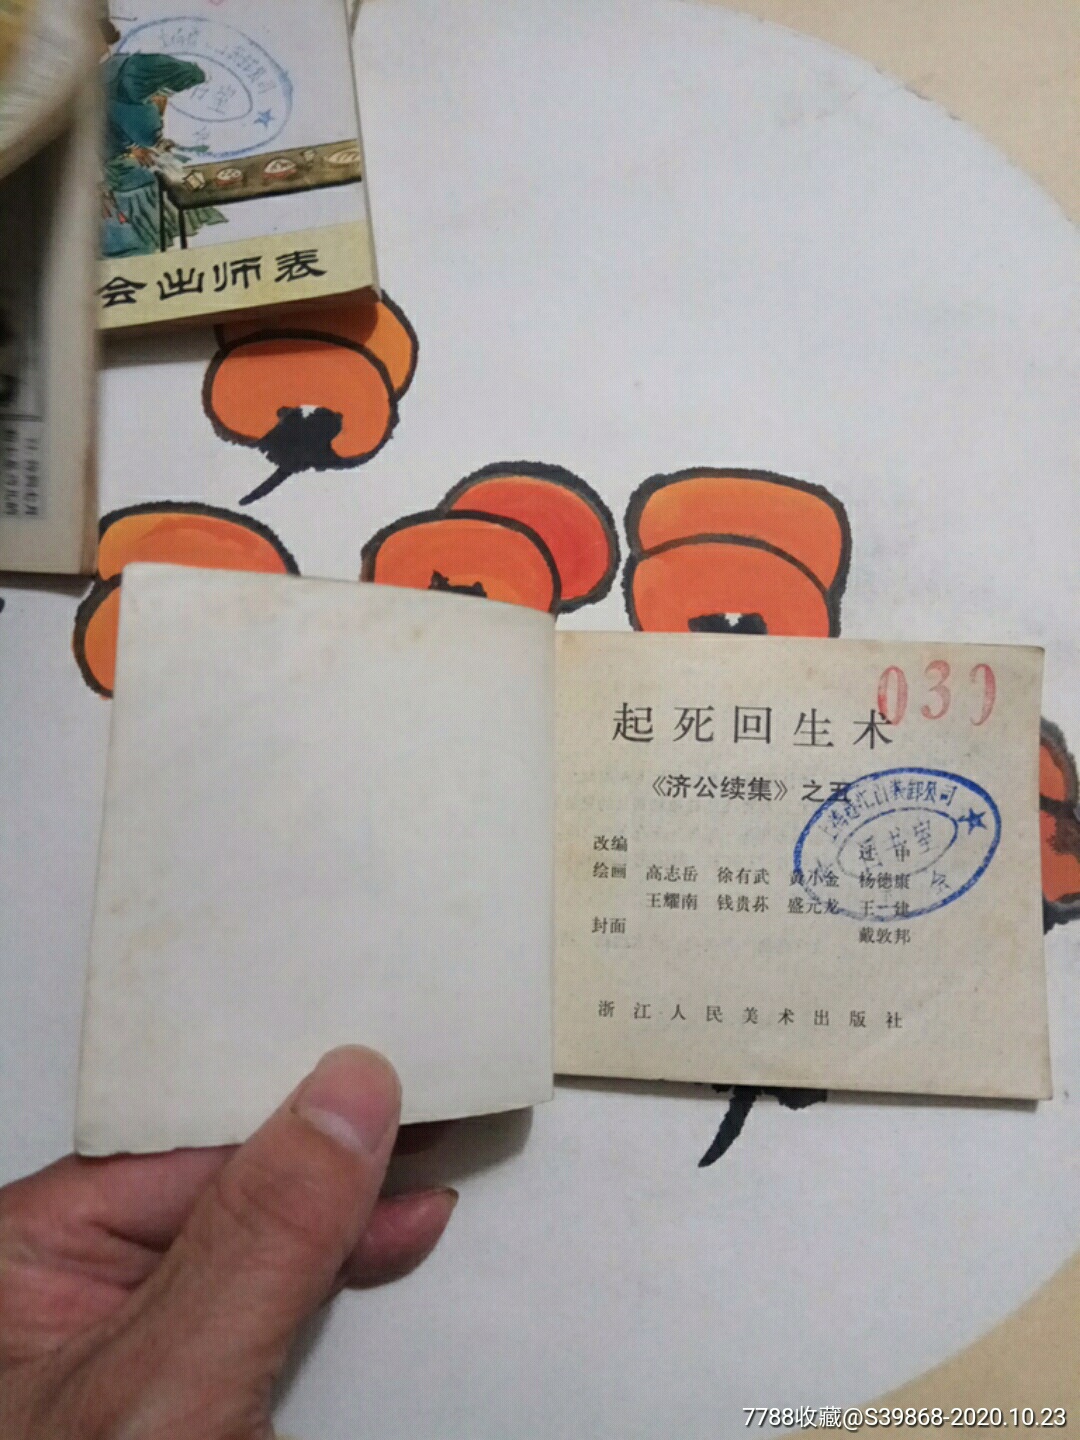 会出师表
030
起死回生术
《济公续集》之五
改编
绘画 高志岳 徐有武 黄小金 杨德康
王耀南 钱贵荪 盛元龙 王一建
封面 戴敦邦
浙江人民美术出版社
7788收藏@S39868-2020.10.23